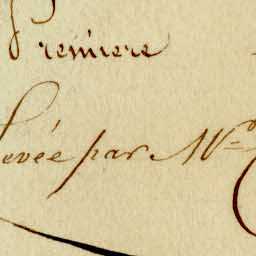 Premiere
Levée par Mr=